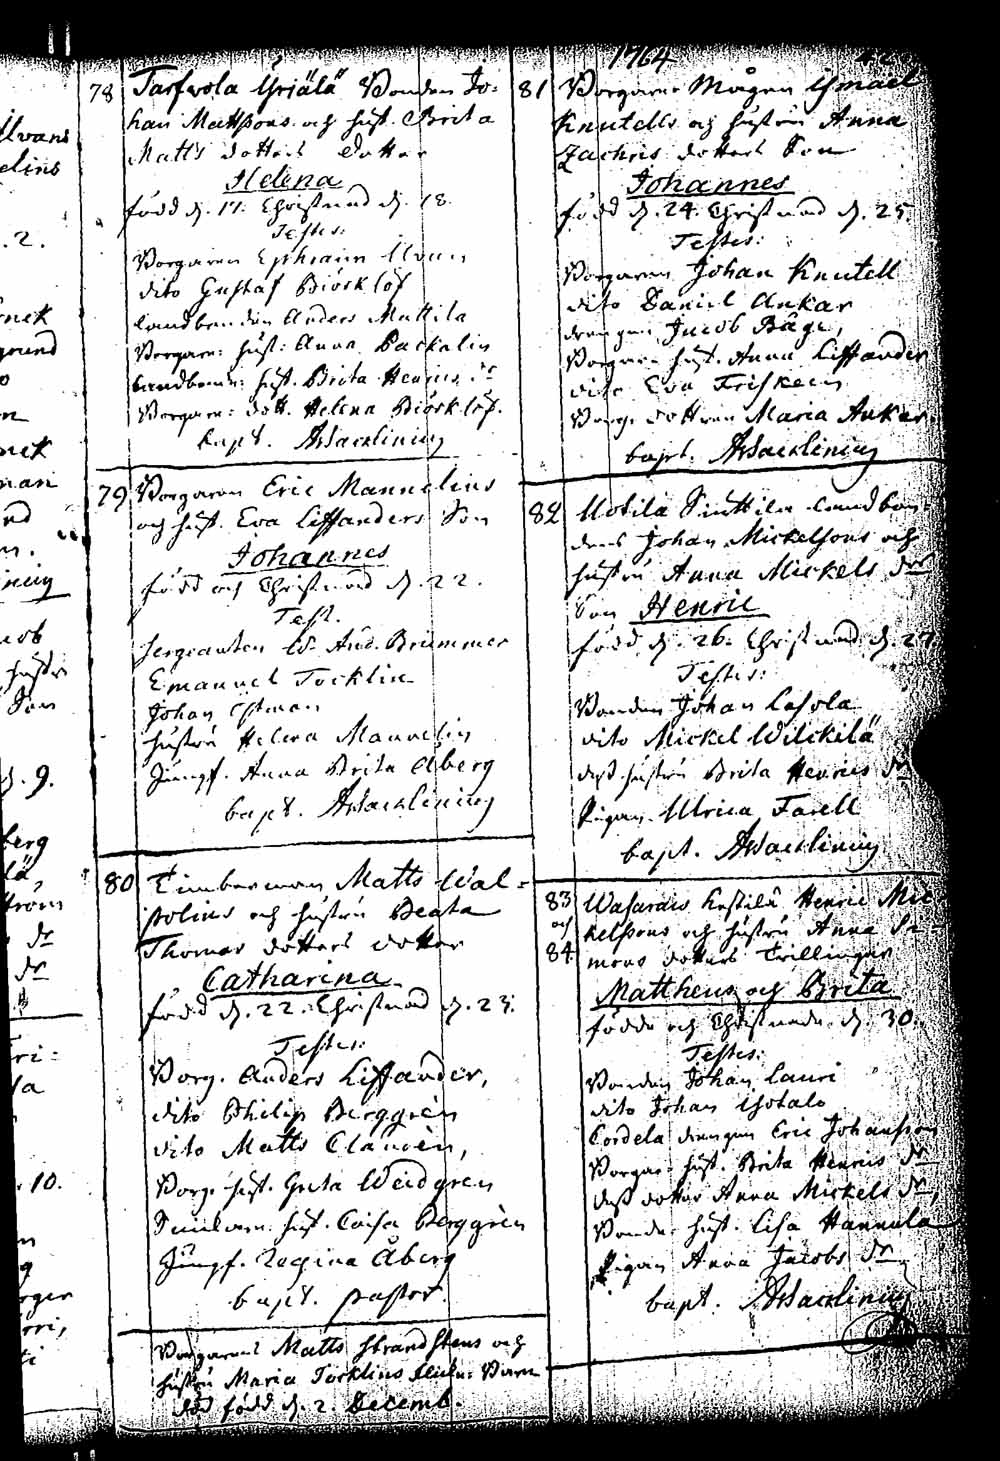 1764
78 Tarfwola Yrjälä Bonden Jo-
han Mattssons och hust. Brita
Matts dotters dotter
Helena
född d. 17. Christnad d. 18.
Testes:
Borgaren Ephraim Ulvan
dito Gustaf Biörklöf
Landbonden Anders Mattila
Borgare: hust: Anna Packalin
Landbond: hust. Brita Henrics dr
Borgare: dott. Helena Biörklöf.
bapt. AWacklining
79 Borgaren Eric Mannelins
och hust. Eva Liffanders Son
Johannes
född och Christnad d. 22.
Test.
Sergeanten And. Brummer
Emanuel Tocklin
Johan Östman
Hustru Helena Mannelin
Jungf. Anna Brita Åberg
bapt. AWacklining
80 Timberman Matts Wal=
polius och hustru Beata
Thomas dotters dotter
Catharina
född d. 22. Christnad d. 23.
Testes:
Borg. Anders Liffander,
dito Philip Berggrèn
dito Matts Claudèn,
Borg. hust. Greta Weidgren
hust. Caisa Berggrèn
Jungf. Regina Åberg
bapt. pastor.
Borgarens Matts Strandstens och
hustru Maria Tocklins Barn
död född d. 2. Decemb.
81 Borgare Mågen Ismael
Knutells och hustru Anna
Zachris dotters Son
Johannes
född d. 24. Christnad d. 25
Testes:
Borgaren Johan Knutell
dito Daniel Ankar
drengen Jacob Båge,
Borgare hust. Anna Liffander
dito Eva Friskeen
Borg. dottren Maria Ankar.
bapt. AWacklining
82 Uotila Sinttila Landbon-
dens Johan Mickelssons och
hustru Anna Mickels drs
Son Henric
född d. 26. Christnad d. 27.
Testes:
Bonden Johan Lassola
dito Mickel Wilckilä
dess hustru Brita Henrics dr
Pigan Ulrica Forell
bapt. AWacklining
83 och 84 Wasarais Kestilä Henric Mic-
kelssons och hustru Anna Si-
mons dotters Tvillingar
Mattheus och Brita
födde och Christnade d. 30.
Testes:
Bonden Johan Lauri
dito Johan Isotalo
Cordela drengen Eric Johansson
Borgar hust. Brita Henrics dr
dess dotter Anna Mickels dr,
Bonde hust. Lisa Hannula
Pigan Anna Jacobs dr
bapt. AWacklining